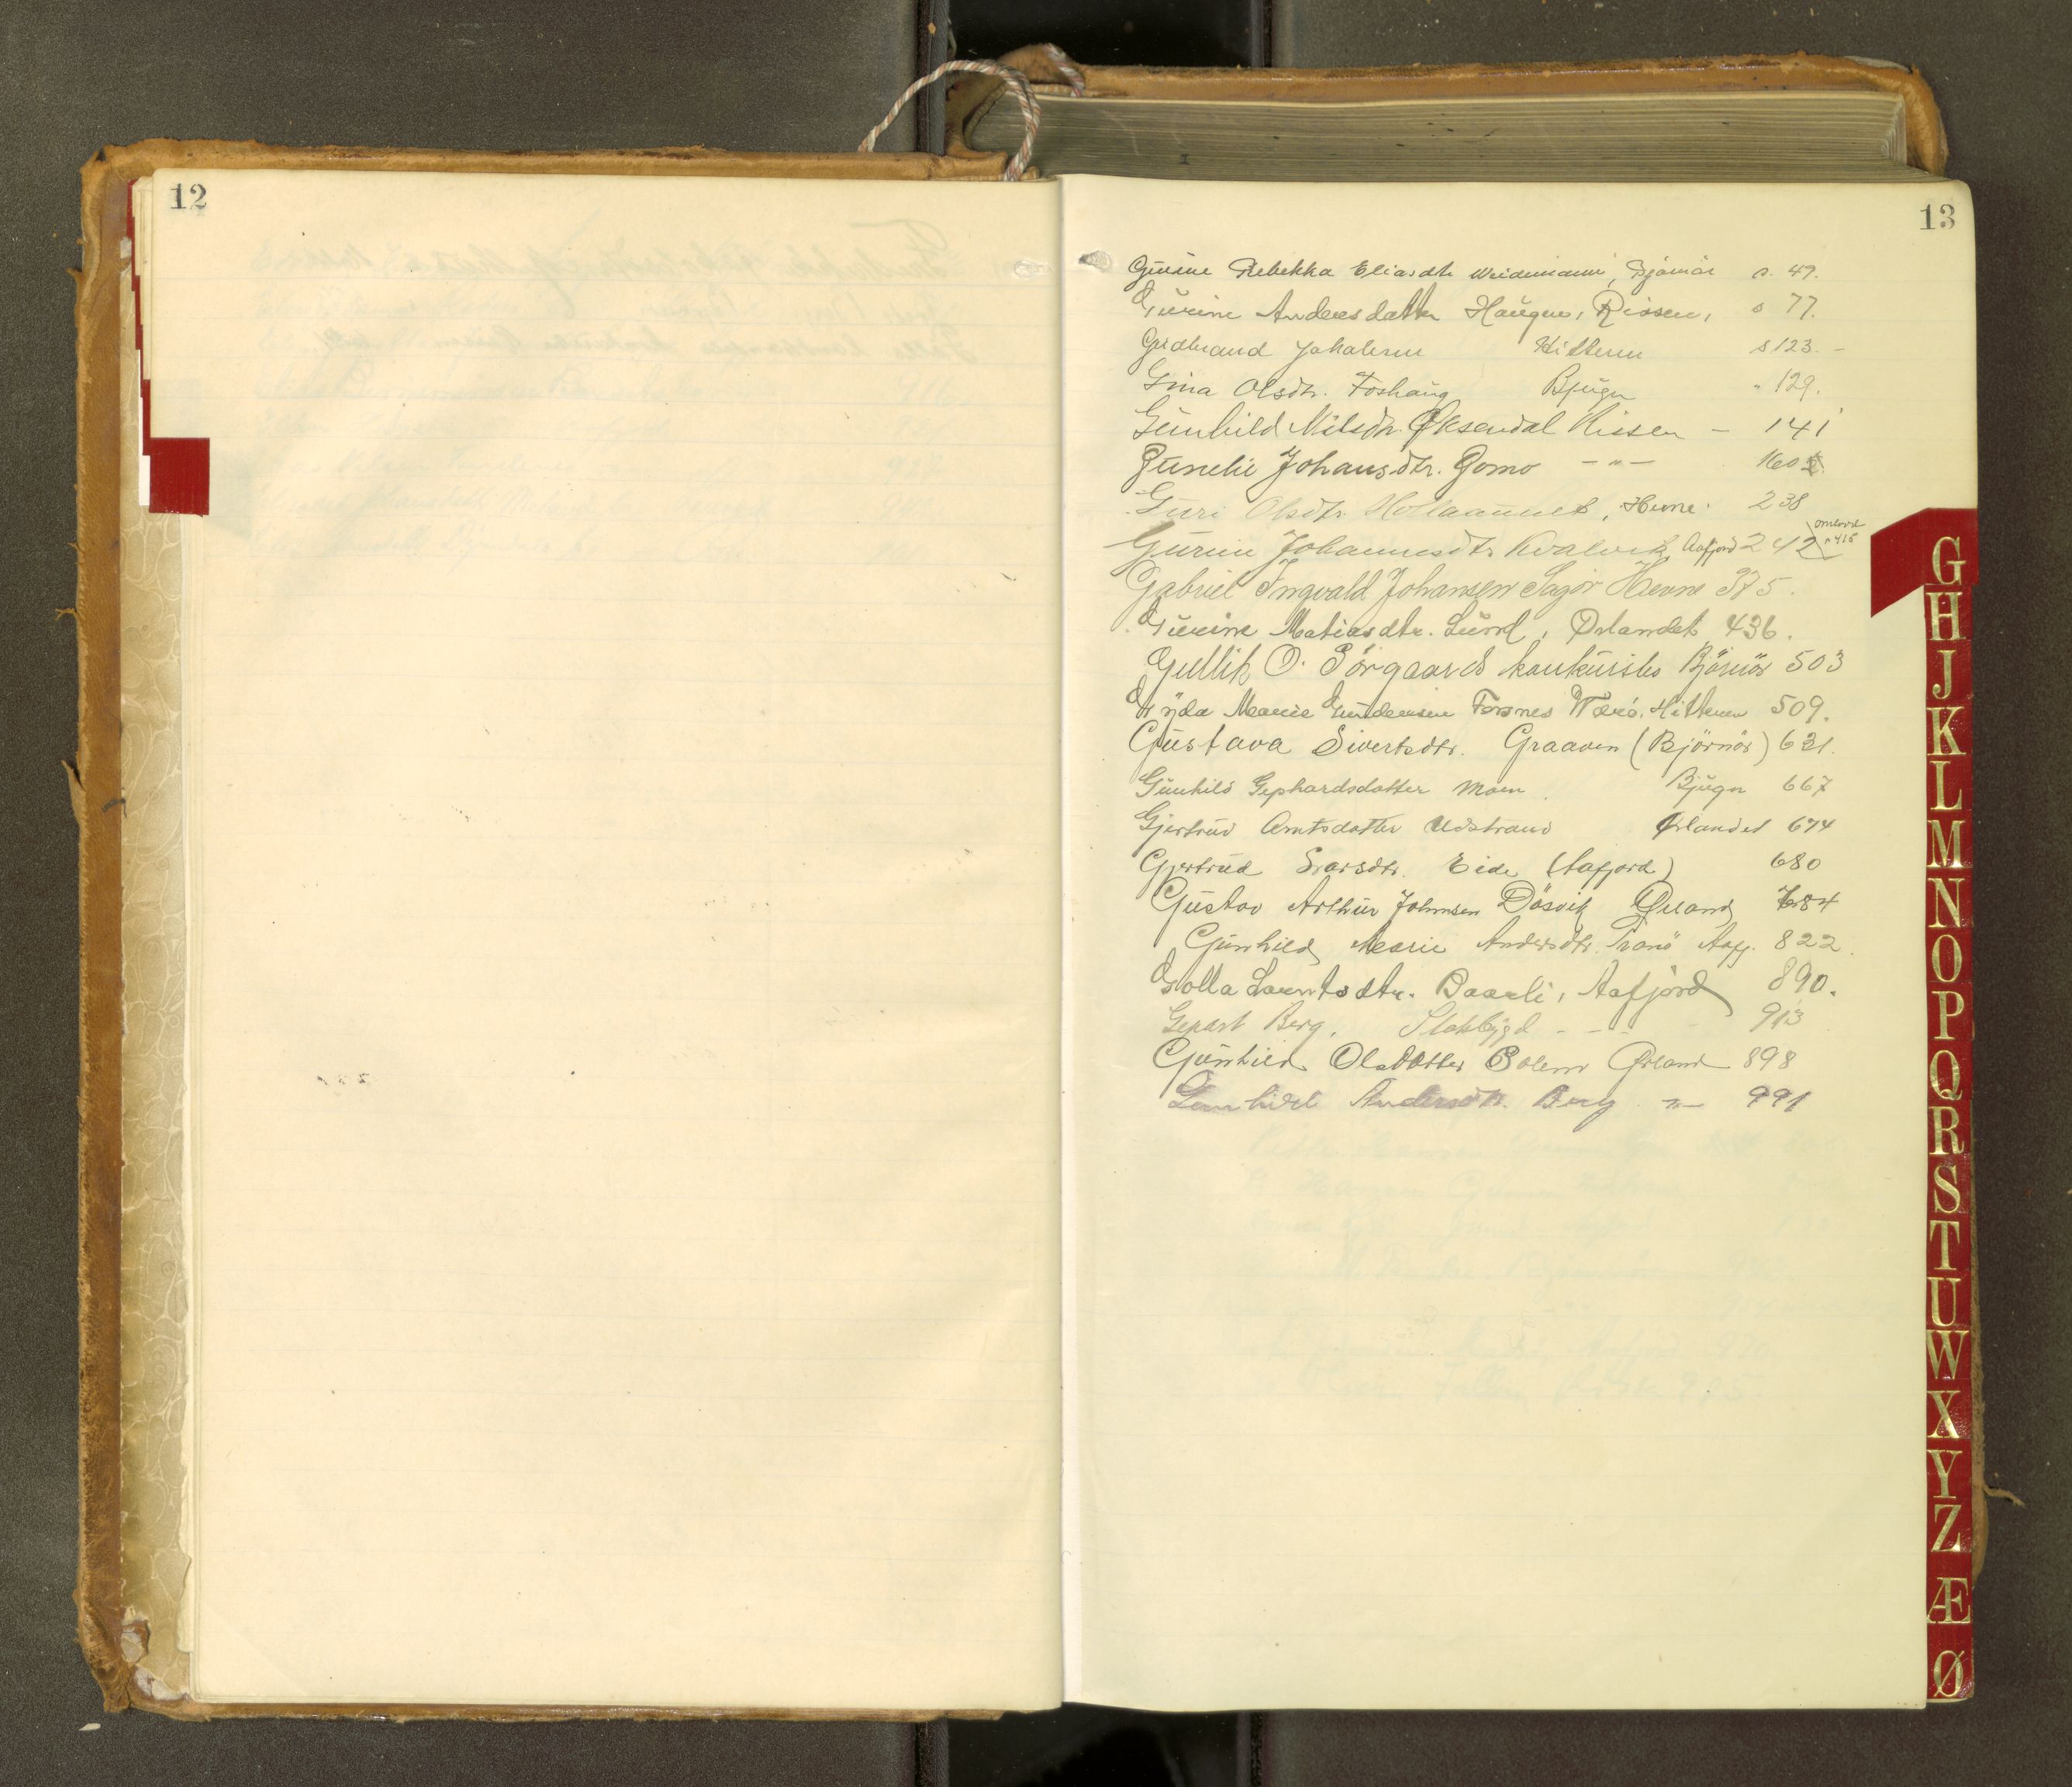 12
13
Gurine Rebekka Eliasdtr Weidemann, Björnör s. 49.
Gurine Andersdatter Haugen, Rissen, s 77.
Gudbrand Jakobsen Hitteren s 123. –
Gina Olsdtr. Foshaug Bjugn " 129.
Gunhild Nilsdtr. Øksendal Rissen – 141
Gunelie Johansdtr. Gomo – " – 160
Guri Olsdtr. Hollaaunet, Hevne. 238
Gurine Johannesdtr Kvalvik, Aafjord 242 omlovd 415
Gabriel Ingvald Johansen Sagör Hevne 375.
Gurine Matiasdtr. Lund, Ørlandet 436.
Gullik O. Sörgaards konkursbo Björnör 503
Gyda Marie Gundersen Forsnes Hitteren 509.
Gustava Sivertsdtr. Graaven (Björnör) 631.
Gunhild Gephardsdatter Moen Bjugn 667
Gjertrud Arntsdatter Udstrand Ørlandet 674
Gjertrud Larsdtr. Eide (Aafjord) 680
Gustav Arthur Johnsen Dösvik Ørland 784
Gunhild Marie Andersdtr. Tranö Aafj. 822.
Golla Lorntsdtr. Baarli, Aafjord 890.
Gepart Berg. Stokbygd – – – 913
Gunhild Olsdatter Solem Ørland 898
Gunhild Andersdtr. Berg – " – 991
G
H
J
K
L
M
N
O
P
Q
R
S
T
U
W
X
Y
Z
Æ
Ø